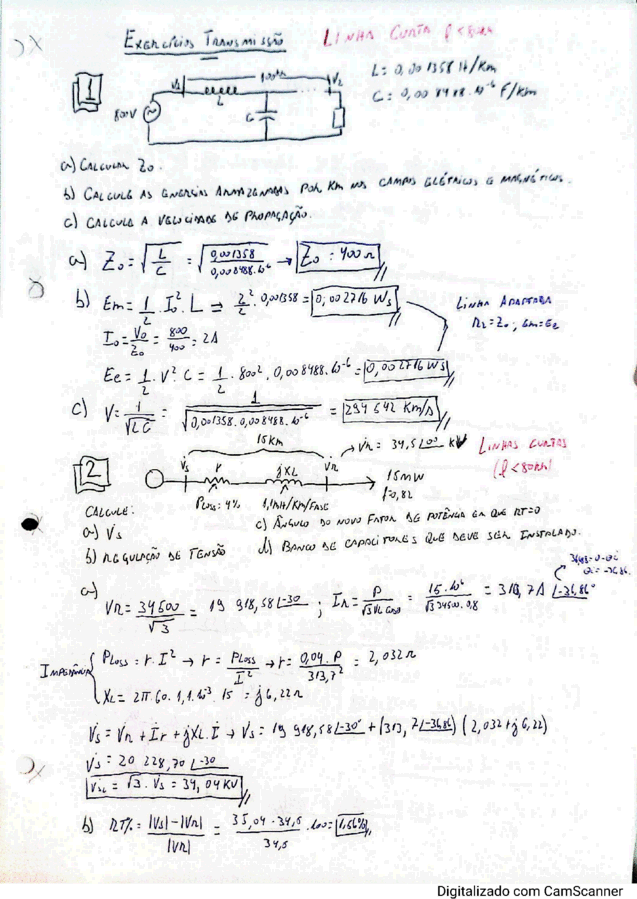 EXERCÍCIOS TRANSMISSÃO LINHA CURTA l<80km
1
800V V1 100km V2 L C
L = 0,001358 H/Km
C = 0,008488.10^-6 F/Km
a) CALCULAR Zo.
b) CALCULE AS ENERGIAS ARMAZENADAS POR KM NOS CAMPOS ELÉTRICOS E MAGNÉTICOS.
c) CALCULE A VELOCIDADE DE PROPAGAÇÃO.
a) Zo = √(L/C) = √(0,001358/0,008488.10^-6) → Zo = 400 Ω
b) Em = 1/2 . Io² . L → 2²/2 . 0,001358 = 0,002716 Ws
LINHA ADAPTADA
Rr = Zo ; Em = Ee
Io = Vo/Zo = 800/400 = 2A
Ee = 1/2 . V² . C = 1/2 . 800² . 0,008488.10^-6 = 0,002716 Ws
c) V = 1/√(LC) = 1/√(0,001358 . 0,008488.10^-6) = 294 542 Km/s
2
15Km
Vs r jXL Vr
LINHAS CURTAS
(l<80km)
15MW
PLoss: 4% 1,1mH/Km/FASE
CALCULE:
a) Vs
b) REGULAÇÃO DE TENSÃO
c) ÂNGULO DO NOVO FATOR DE POTÊNCIA EM QUE RT=0
d) BANCO DE CAPACITORES QUE DEVE SER INSTALADO.
a)
Vr = 34500/√3 = 19 918,58 ∠-30 ; Ir = P/(√3 VL cosθ) = 15.10^6/(√3 34500 . 0,8) = 313,7A ∠-36,86°
IMPEDÂNCIA { PLoss = r . I² → r = PLoss/I² → r = 0,04 . P/313,7² = 2,032 Ω
XL = 2π.60.1,1.10^-3 . 15 = j6,22 Ω
Vs = Vr + Ir + jXL.I → Vs = 19 918,58 ∠-30° + (313,7 ∠-36,86) (2,032 + j6,22)
Vs = 20 228,70 ∠-30
VsL = √3 . Vs = 35,04 KV
b) RT% = |Vs| - |Vr| / |Vr| = 35,04 - 34,5 / 34,5 . 100 = 1,56%
Digitalizado com CamScanner